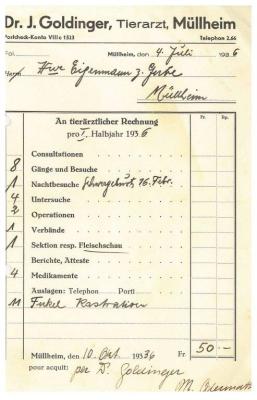 Dr. J. Goldinger, Tierarzt, Müllheim
Postcheck-Konto VIIIc 1523 Telephon 2.66
Fol. Müllheim, den 4 Juli 1936
Herrn Hw Eigenmann z. Gerbe
Müllheim
An tierärztlicher Rechnung Fr. Rp.
pro I. Halbjahr 1936
Consultationen
8 Gänge und Besuche
1 Nachtbesuche Schwergeburt 16. Febr.
4 Untersuche
2 Operationen
1 Verbände
1 Sektion resp. Fleischschau
Berichte, Atteste
4 Medikamente
Auslagen: Telephon Porti
11 Ferkel Kastration
Müllheim, den 10 Okt. 1936 Fr. 50 -
pour acquit: per Dr. Goldinger
M.